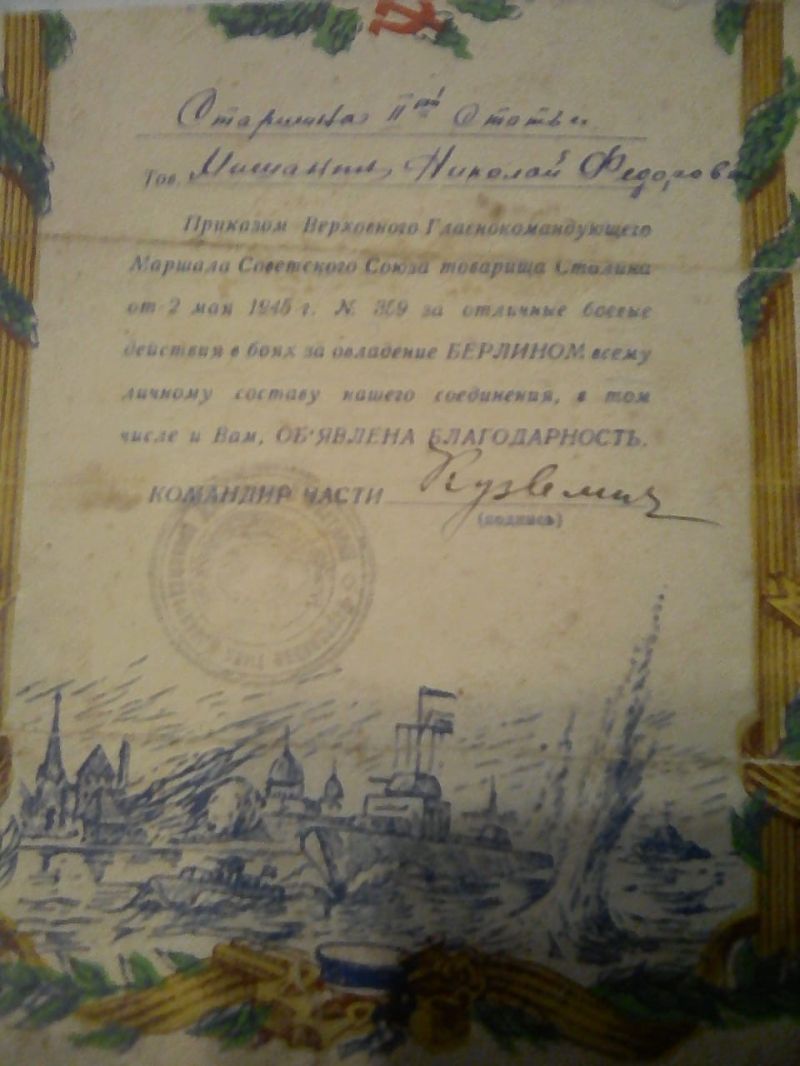 Старшина II ой Статьи
Тов. Николай Федорови
Приказом Верховного Главнокомандующего
Маршала Советского Союза товарища Сталина
от 2 мая 1945 г. № 359 за отличные боевые
действия в боях за овладение БЕРЛИНОМ всему
личному составу нашего соединения, в том
числе и Вам, ОБ'ЯВЛЕНА БЛАГОДАРНОСТЬ.
КОМАНДИР ЧАСТИ
(подпись)